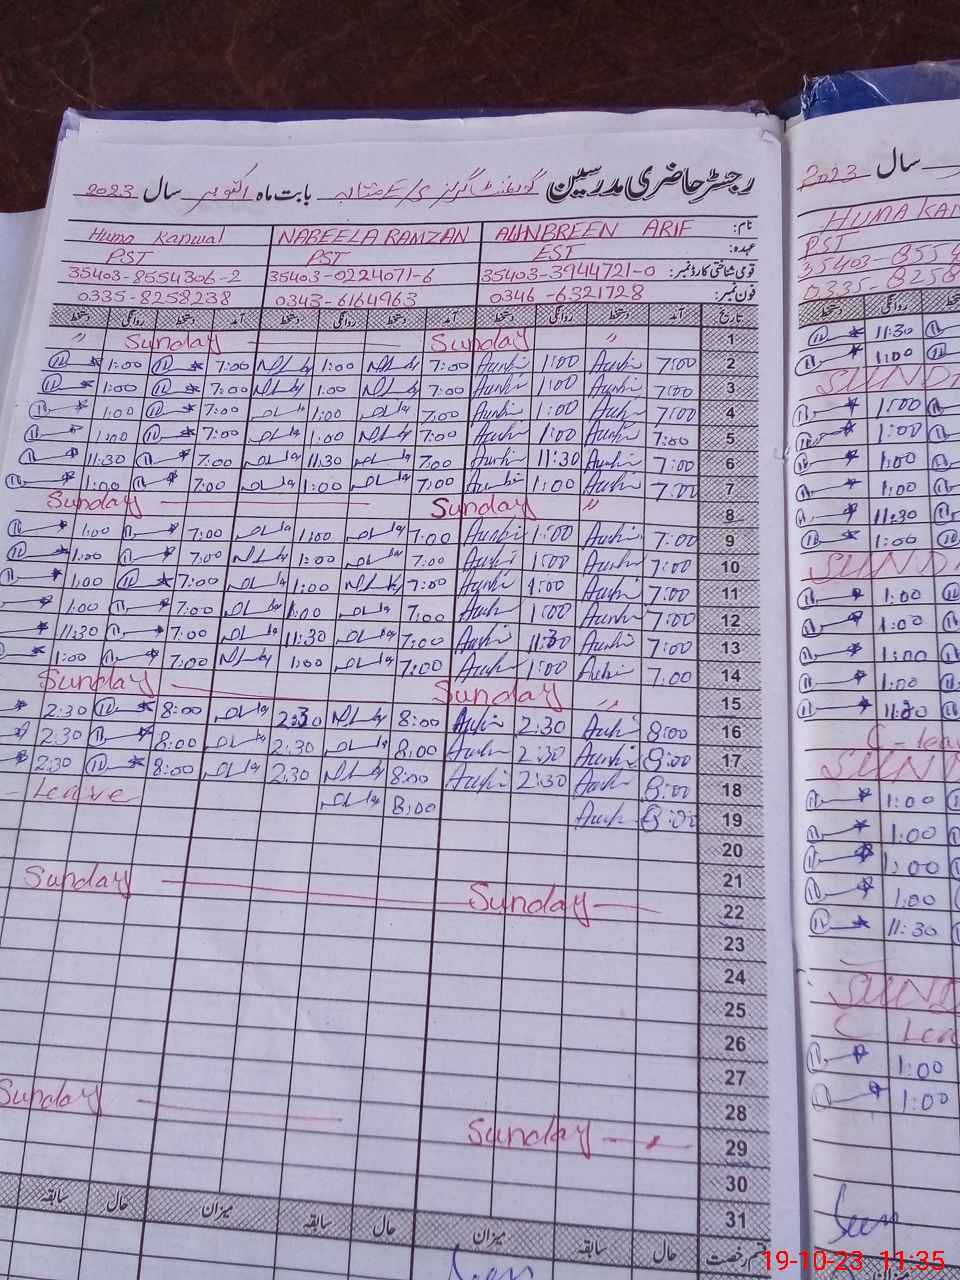 رجسٹر حاضری مدرسین گورنمنٹ گرلز E/S بابت ماہ اکتوبر سال 2023
نام: AUNBREEN ARIF NABEELA RAMZAN Huma Kanwal
عہدہ: EST PST PST
قومی شناختی کارڈ نمبر: 35403-3944721-0 35403-0224071-6 35403-8554306-2
فون نمبر: 0346-6321728 0343-6164963 0335-8258238
تاریخ آمد دستخط روانگی دستخط آمد دستخط روانگی دستخط آمد دستخط روانگی دستخط
1 〃 Sunday Sunday 〃
2 7:00 1:00 7:00 1:00 7:00 1:00
3 7:00 1:00 7:00 1:00 7:00 1:00
4 7:00 1:00 7:00 1:00 7:00 1:00
5 7:00 1:00 7:00 1:00 7:00 1:00
6 7:00 11:30 7:00 11:30 7:00 11:30
7 7:00 1:00 7:00 1:00 7:00 1:00
8 〃 Sunday Sunday
9 7:00 1:00 7:00 1:00 7:00 1:00
10 7:00 1:00 7:00 1:00 7:00 1:00
11 7:00 1:00 7:00 1:00 7:00 1:00
12 7:00 1:00 7:00 1:00 7:00 1:00
13 7:00 11:30 7:00 11:30 7:00 11:30
14 7:00 1:00 7:00 1:00 7:00 1:00
15 〃 Sunday Sunday
16 8:00 2:30 8:00 2:30 8:00 2:30
17 8:00 2:30 8:00 2:30 8:00 2:30
18 8:00 2:30 8:00 2:30 8:00 2:30
19 8:00 8:00 Leave
20
21
22 Sunday Sunday
23
24
25
26
27
28
29 Sunday Sunday
30
31
قسم رخصت حال سابقہ میزان حال سابقہ میزان حال سابقہ
سال 2023
HUMA KAN
PST
35403-8554
0335-8258
روانگی دستخط
11:30
1:00
SUND
1:00
1:00
1:00
1:00
11:30
1:00
SUND
1:00
1:00
1:00
1:00
11:30
C-lea
SUND
1:00
1:00
1:00
1:00
11:30
SUND
C Lea
1:00
1:00
میزان
19-10-23 11:35